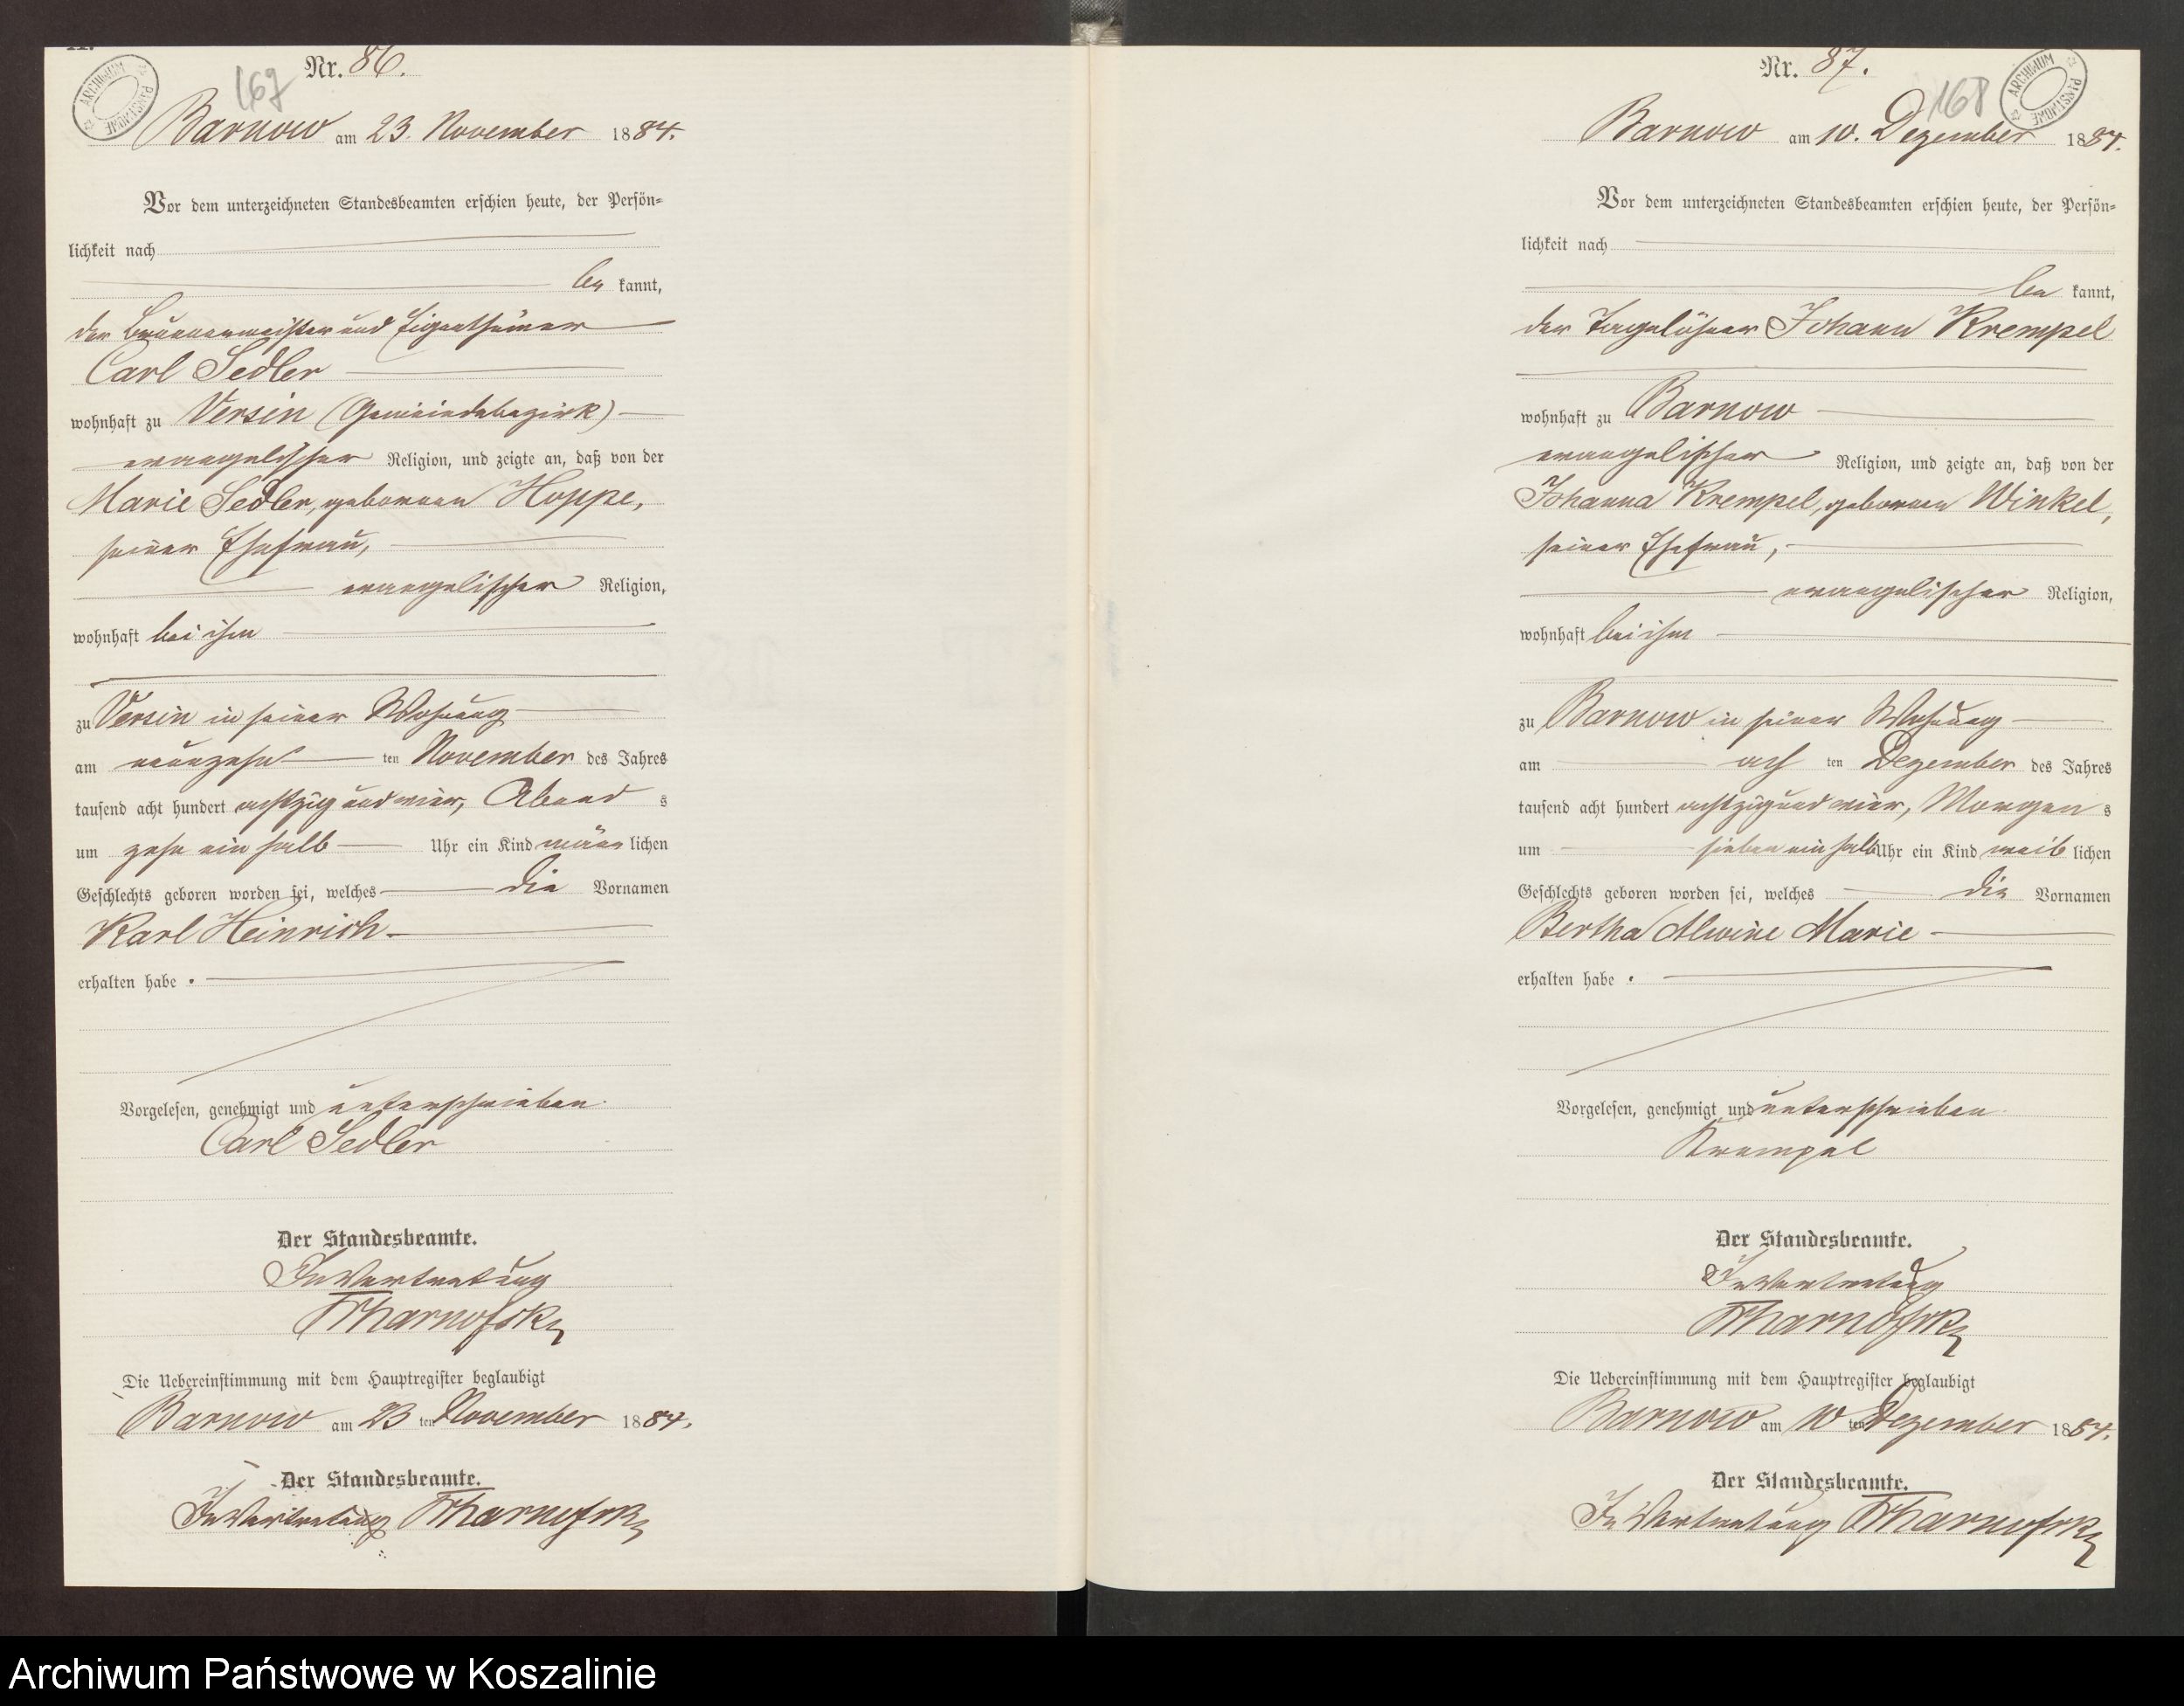 Nr. 86.
167
ARCHIWUM PAŃSTWOWE
Barnow am 23. November 1884.
Vor dem unterzeichneten Standesbeamten erschien heute, der Persön-
lichkeit nach
be kannt,
der Brunnenmeister und Eigenthümer
Carl Sedler
wohnhaft zu Versin (Gemeindebezirk)
evangelischer Religion, und zeigte an, daß von der
Marie Sedler, geborenen Hoppe,
seiner Ehefrau,
evangelischer Religion,
wohnhaft bei ihm
zu Versin in seiner Wohnung
am neunzehn ten November des Jahres
tausend acht hundert achtzig und vier, Abend s
um zehn ein halb Uhr ein Kind männ lichen
Geschlechts geboren worden sei, welches die Vornamen
Karl Heinrich
erhalten habe.
Vorgelesen, genehmigt und unterschrieben.
Carl Sedler
Der Standesbeamte.
In Vertretung
Die Uebereinstimmung mit dem Hauptregister beglaubigt
Barnow am 23 ten November 1884.
Der Standesbeamte.
In Vertretung
Nr. 87.
168
ARCHIWUM PAŃSTWOWE
Barnow am 10. Dezember 1884.
Vor dem unterzeichneten Standesbeamten erschien heute, der Persön-
lichkeit nach
be kannt,
der Tagelöhner Johann Krempel
wohnhaft zu Barnow
evangelischer Religion, und zeigte an, daß von der
Johanna Krempel, geborenen Winkel,
seiner Ehefrau,
evangelischer Religion,
wohnhaft bei ihm
zu Barnow in seiner Wohnung
am ach ten Dezember des Jahres
tausend acht hundert achtzig und vier, Morgen s
um sieben ein halb Uhr ein Kind weib lichen
Geschlechts geboren worden sei, welches die Vornamen
Bertha Alwine Marie
erhalten habe.
Vorgelesen, genehmigt und unterschrieben.
Krempel
Der Standesbeamte.
In Vertretung
Die Uebereinstimmung mit dem Hauptregister beglaubigt
Barnow am 10 ten Dezember 1884.
Der Standesbeamte.
In Vertretung
Archiwum Państwowe w Koszalinie